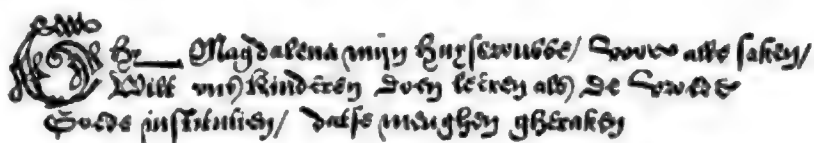 Ghy Magdalena mijn huysvrouwe / voor alle saken /
Wilt mijn kinderen doen leeren als de vroede
Goede institutien / dat se meughen gheraken